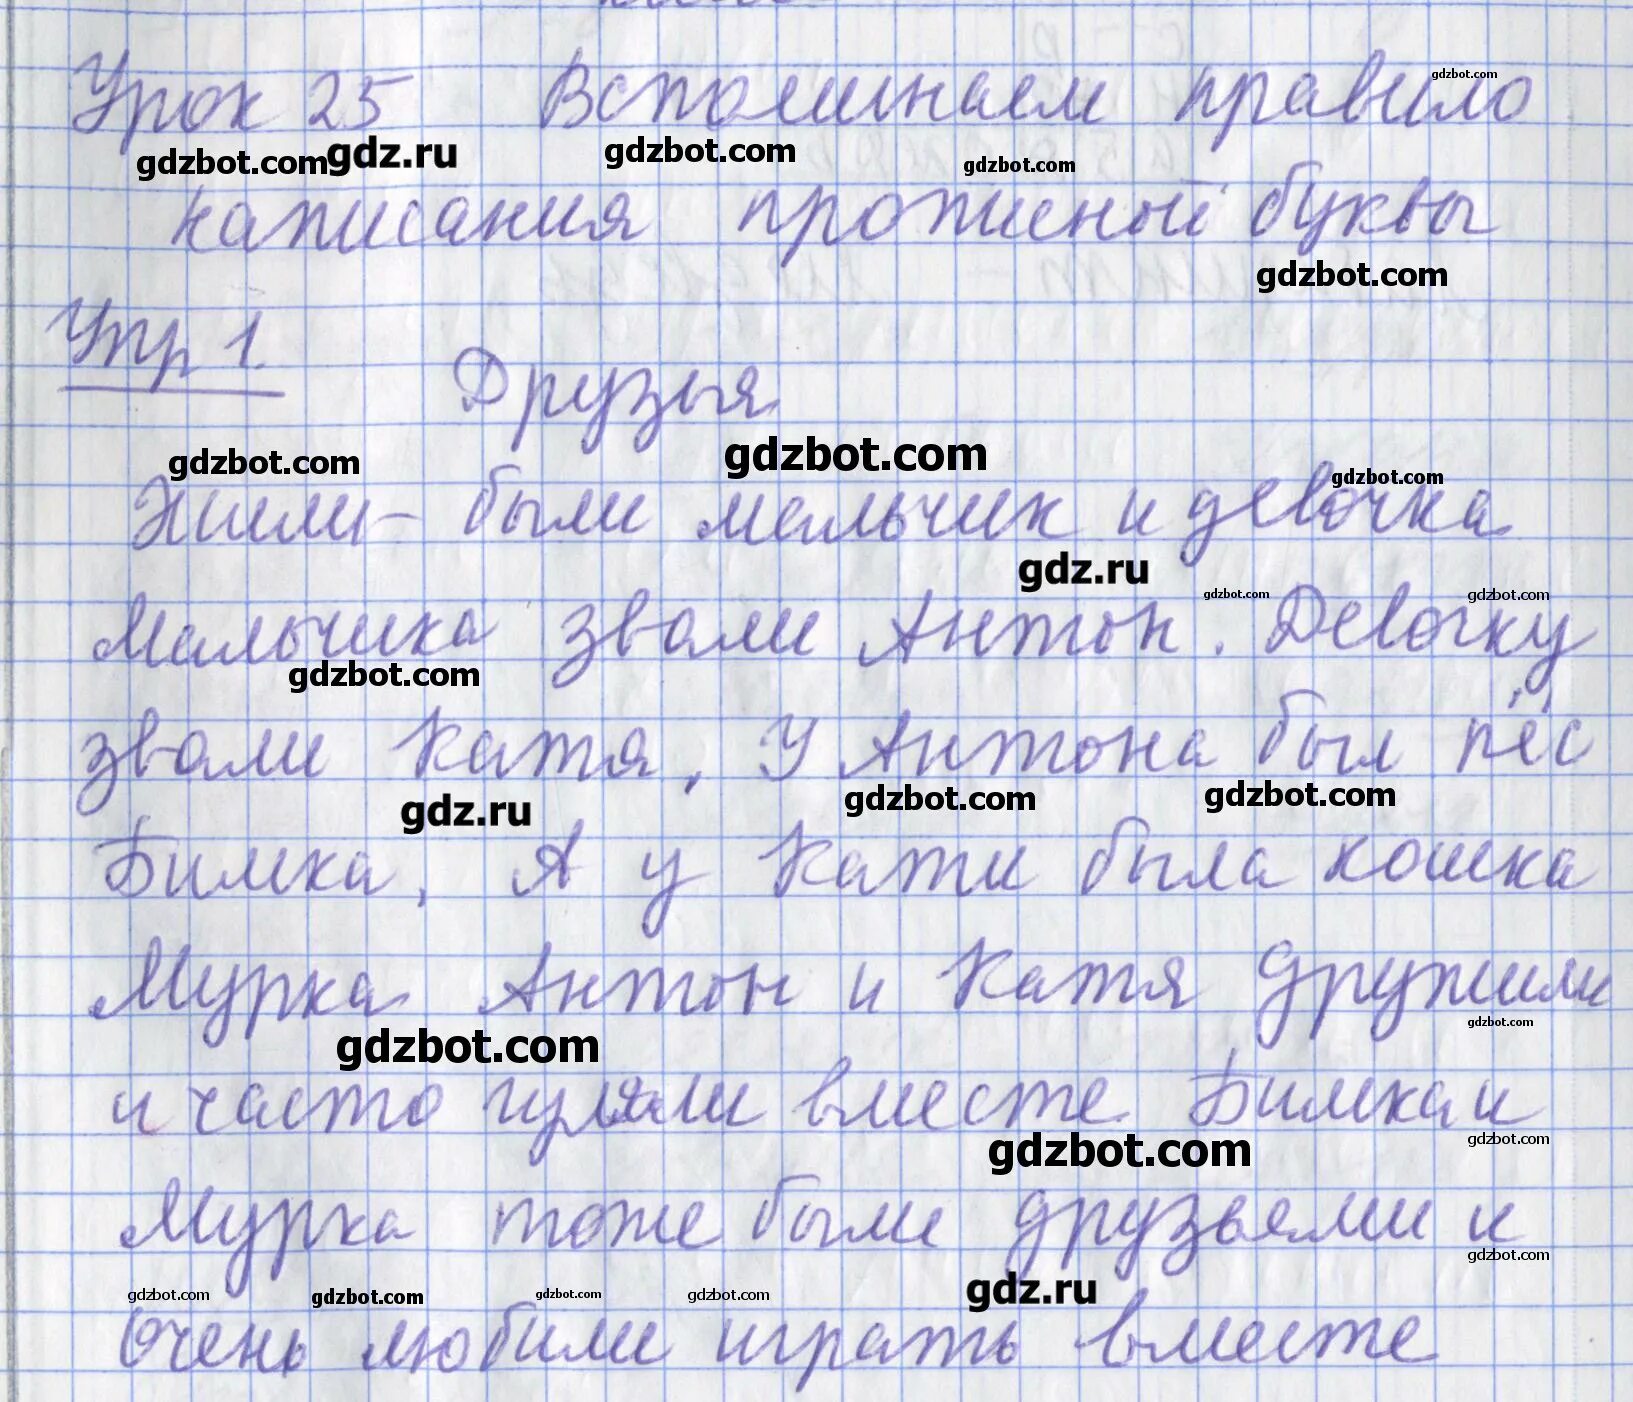 Урок 25 Вспоминаем правило
написания прописной буквы
Упр 1.
Друзья
Жили - были мальчик и девочка
Мальчика звали Антон. Девочку
звали Катя, У Антона был пёс
Бимка, А у Кати была кошка
Мурка Антон и Катя дружили
и часто гуляли вместе Бимка и
Мурка тоже были друзьями и
Очень любили играть вместе
gdzbot.com
gdzbot.com
gdz.ru
gdzbot.com
gdzbot.com
gdzbot.com
gdzbot.com
gdzbot.com
gdzbot.com
gdz.ru
gdzbot.com
gdzbot.com
gdzbot.com
gdz.ru
gdzbot.com
gdzbot.com
gdzbot.com
gdzbot.com
gdzbot.com
gdzbot.com
gdzbot.com
gdzbot.com
gdzbot.com
gdzbot.com
gdzbot.com
gdz.ru